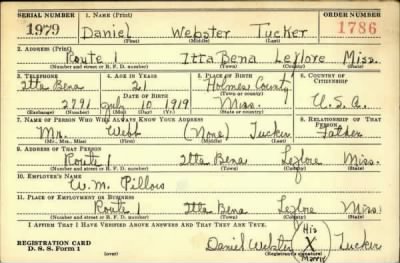 SERIAL NUMBER 1. NAME (Print) ORDER NUMBER
1979 Daniel Webster Tucker 1786
(First) (Middle) (Last)
2. ADDRESS (Print)
Route 1 Itta Bena Leflore Miss.
(Number and street or R. F. D. number) (Town) (County) (State)
3. TELEPHONE 4. AGE IN YEARS 5. PLACE OF BIRTH 6. COUNTRY OF CITIZENSHIP
Itta Bena 21 Holmes County
DATE OF BIRTH (Town or county)
2791 July 10 1919 Miss. U. S. A.
(Exchange) (Number) (Mo.) (Day) (Yr.) (State or country)
7. NAME OF PERSON WHO WILL ALWAYS KNOW YOUR ADDRESS 8. RELATIONSHIP OF THAT PERSON
Mr. Webb (None) Tucker Father
(Mr., Mrs., Miss) (First) (Middle) (Last)
9. ADDRESS OF THAT PERSON
Route 1 Itta Bena Leflore Miss.
(Number and street or R. F. D. number) (Town) (County) (State)
10. EMPLOYER'S NAME
W. M. Pillow
11. PLACE OF EMPLOYMENT OR BUSINESS
Route 1 Itta Bena Leflore Miss.
(Number and street or R. F. D. number) (Town) (County) (State)
I AFFIRM THAT I HAVE VERIFIED ABOVE ANSWERS AND THAT THEY ARE TRUE.
His
REGISTRATION CARD Daniel Webster X Tucker
D. S. S. Form 1 (over) (Registrant's signature)
Mark